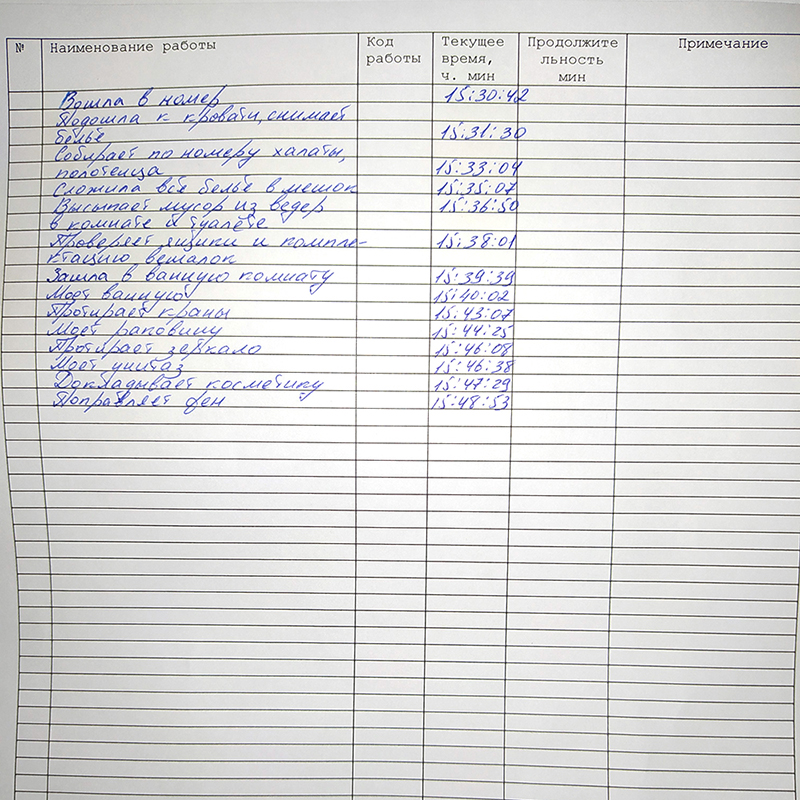 № Наименование работы Код работы Текущее время, ч. мин Продолжите льность мин Примечание
Вошла в номер 15:30:42
Подошла к кровати, снимает
бельё 15:31:30
Собирает по номеру халаты,
полотенца 15:33:04
Сложила всё бельё в мешок 15:35:07
Высыпает мусор из ведер 15:36:50
в комнате и туалете
Проверяет ящики и компле- 15:38:01
ктацию вешалок
Зашла в ванную комнату 15:39:39
Моет ванную 15:40:02
Протирает краны 15:43:07
Моет раковину 15:44:25
Протирает зеркало 15:46:08
Моет унитаз 15:46:38
Докладывает косметику 15:47:29
Поправляет фен 15:48:53